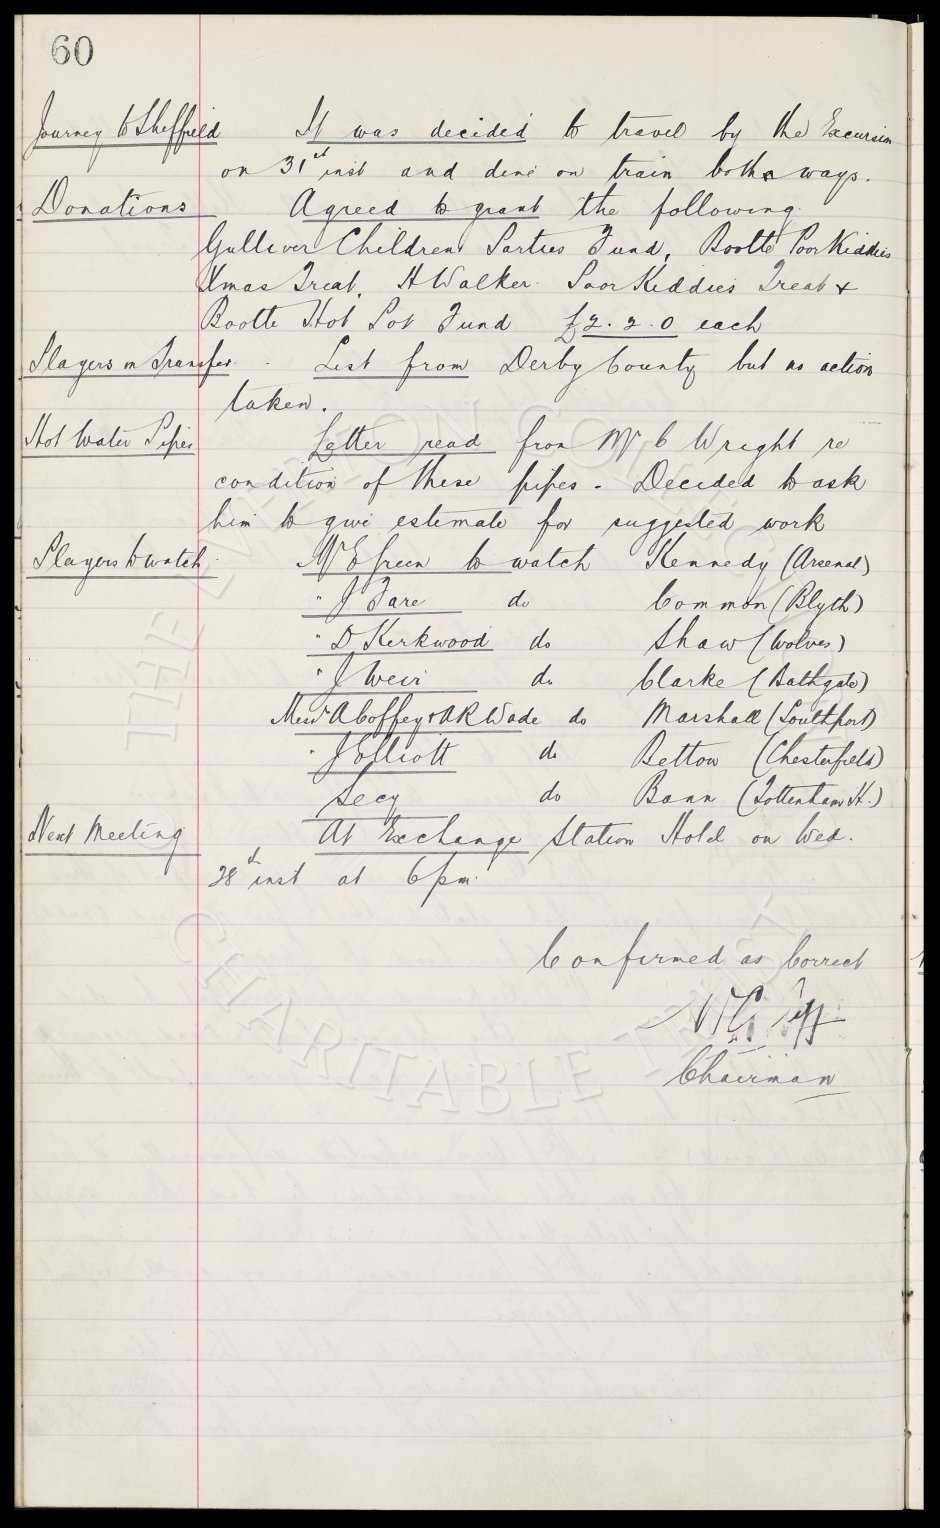 60
Journey to Sheffield It was decided to travel by the Excursion
on 31st inst and dine on train both ways.
Donations Agreed to grant the following
Gulliver Children Parties Fund, Bootle Poor Kiddies
Xmas Treat, H Walker Poor Kiddies Treat &
Bootle Hot Pot Fund £2.2.0 each
Players on Transfer List from Derby County but no action
taken.
Hot Water Pipes Letter read from Mr C Wright re
condition of these pipes. Decided to ask
him to give estimate for suggested work
Players to watch Mr E Green to watch Kennedy (Arsenal)
" J Fare do Common (Blyth)
" D Kirkwood do Shaw (Wolves)
" J Weir do Clarke (Bathgate)
Messrs A Coffey & AR Wade do Marshall (Southport)
" J Elliott do Betton (Chesterfield)
Secy do Bann (Tottenham H.)
Next Meeting At Exchange Station Hotel on Wed.
28th inst at 6 pm.
Confirmed as Correct
Chairman
THE EVERTON COLLECTION
CHARITABLE TRUST